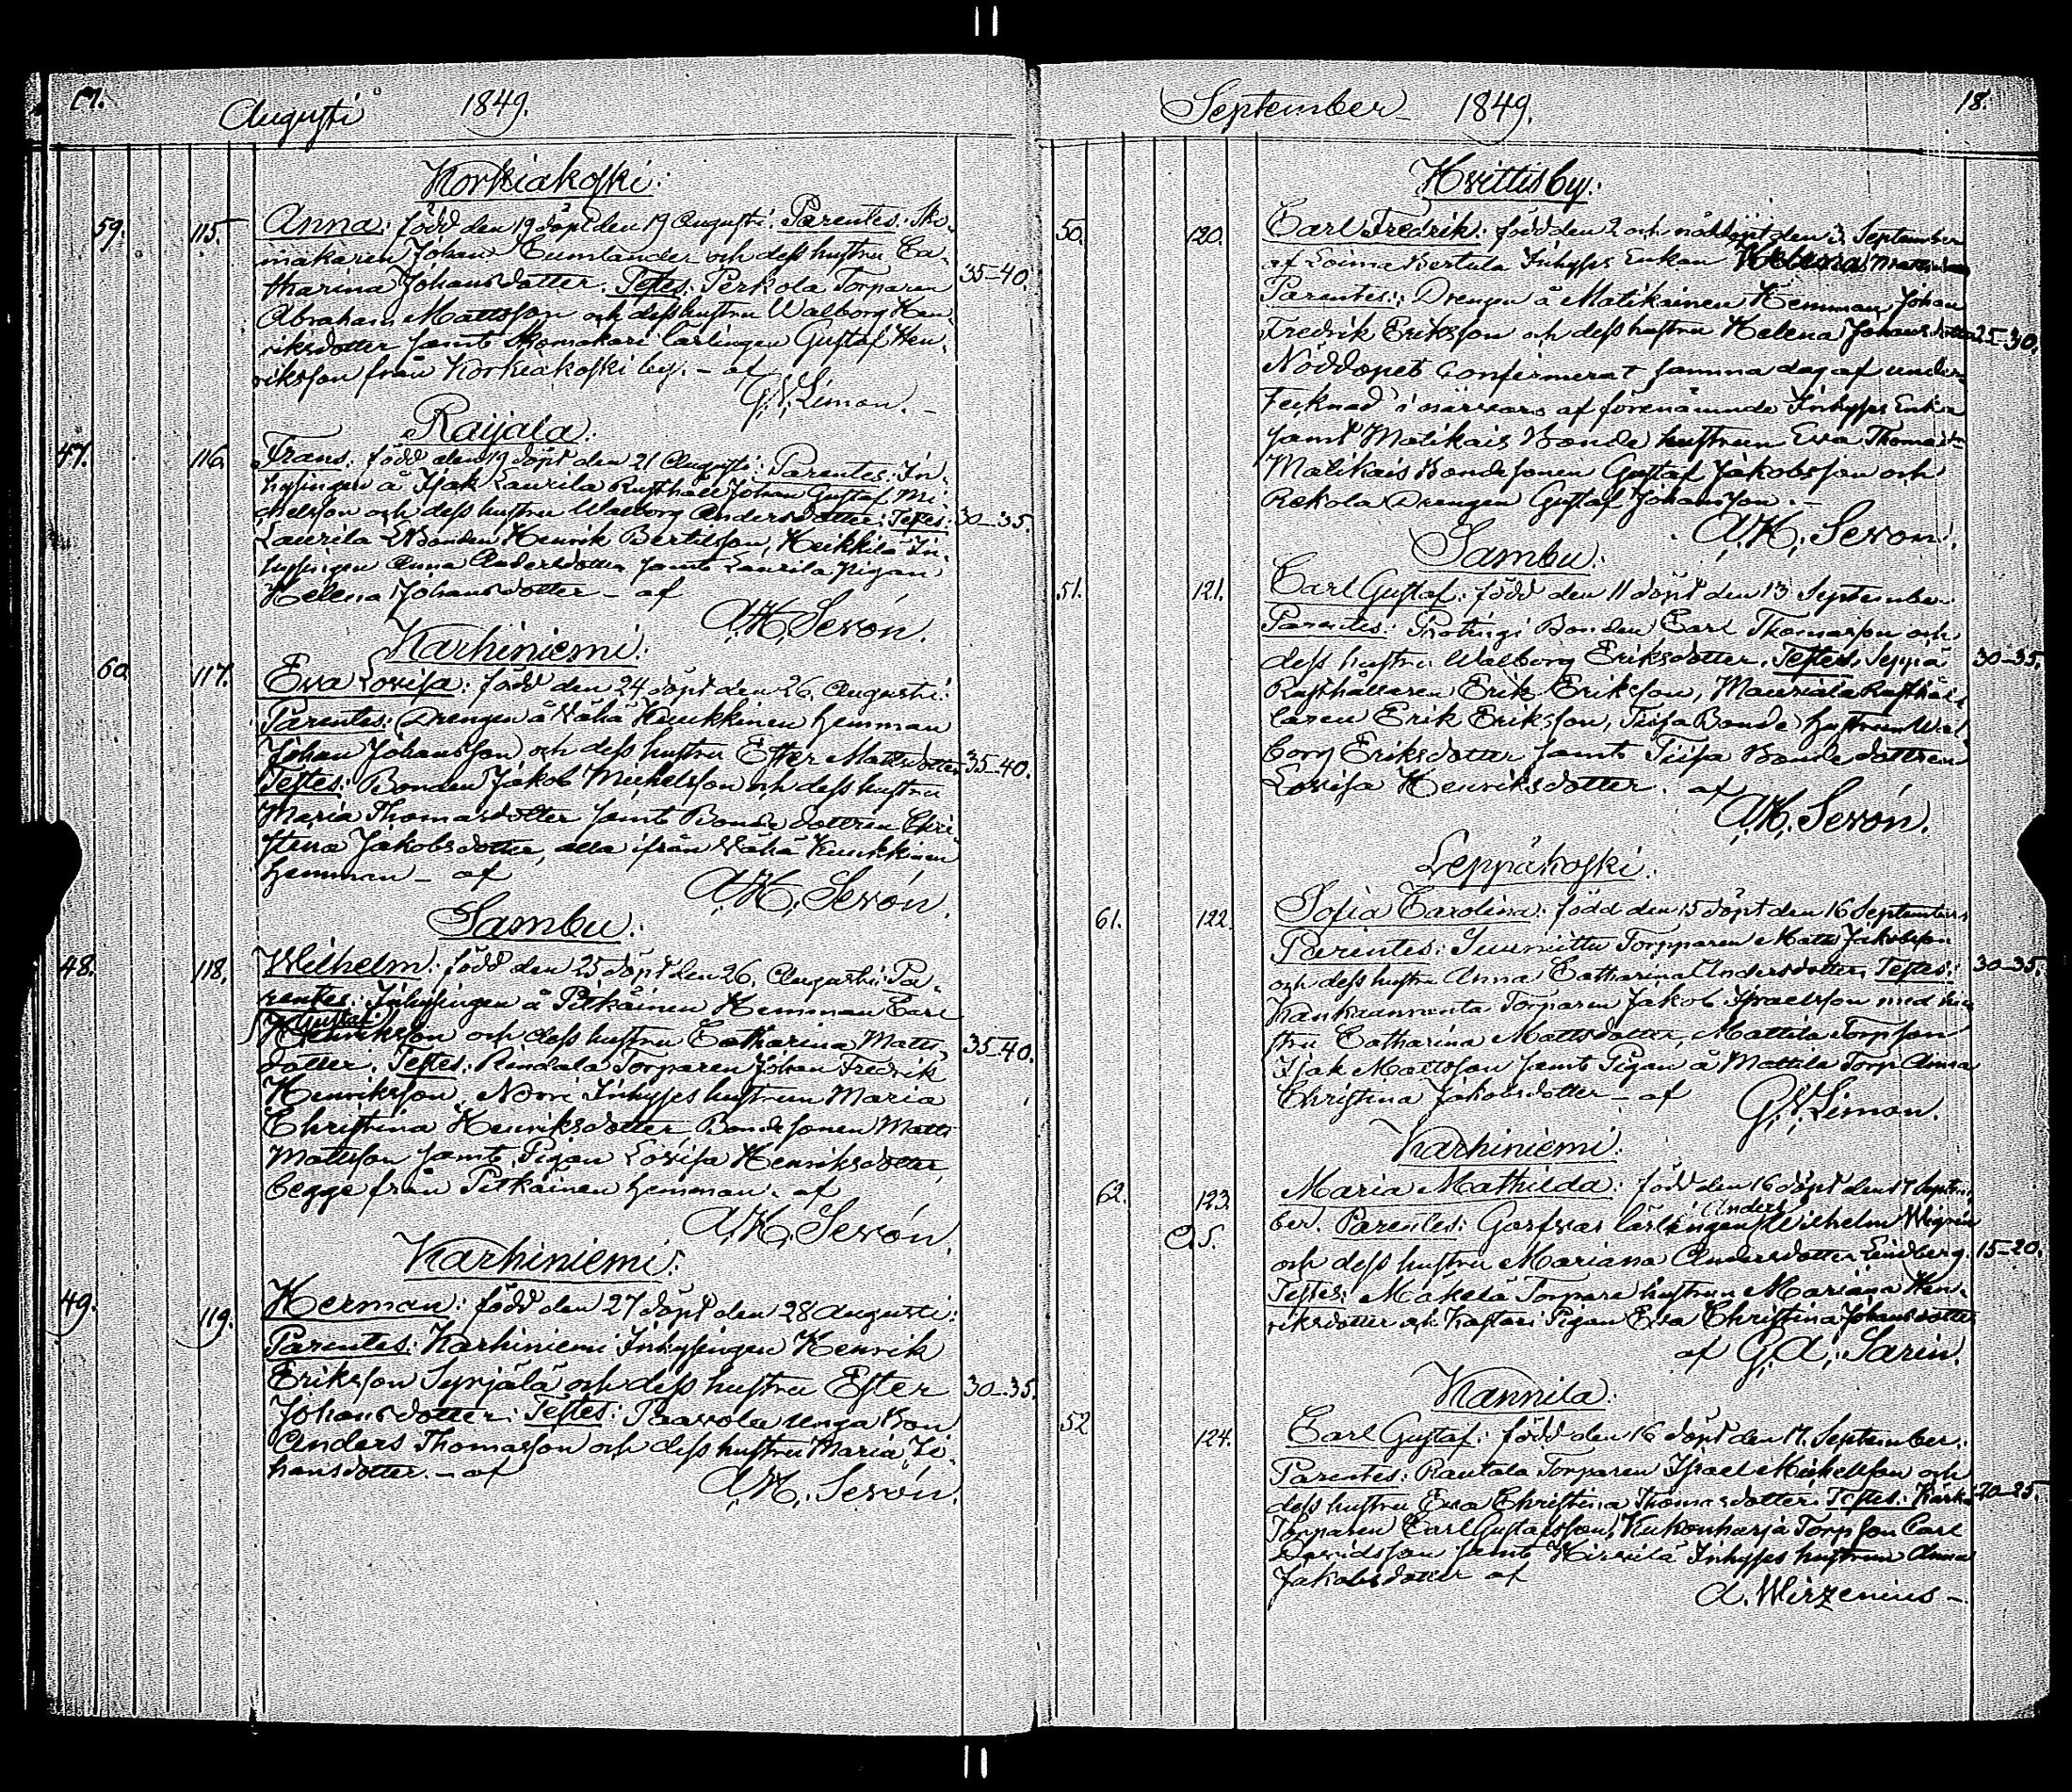 17.
Augusti 1849.
Korkiakoski:
59. 115. Anna: född den 19 döpt den 19 Augusti: Parentes: Sko-
makaren Johan Cumlander och dess hustru Ca-
tharina Johansdotter. Testes: Perkola Torparen 35-40.
Abraham Mattsson och dess hustru Walborg Hen-
riksdotter samt Skomakari lärlingen Gustaf Hen-
riksson från Korkiakoski by. - af
G. V. Limon. -
Raijala:
47. 116. Frans: född den 19 döpt den 21 Augusti: Parentes: In-
hysingen å Isak Laurila Rusthåll Johan Gustaf Mi-
chelsson och dess hustru Walborg Andersdotter: Testes: 30-35.
Laurila Bonden Henrik Bertilsson, Heikkilä In-
hysingen Anna Andersdotter samt Laurila pigan
Helena Johansdotter - af
A. H. Sevón.
Karhiniemi:
60. 117. Eva Lovisa: född den 24 döpt den 26. Augusti:
Parentes: Drengen å Wähä Kuukkinen hemman
Johan Johansson och dess hustru Ester Mattsdotter 35-40.
Testes: Bonden Jakob Michelsson och dess hustru
Maria Thomasdotter samt Bonde dottren Chri-
stina Jakobsdotter, alla ifrån Wähä Kuukkinen
hemman - af
A. H. Sevón.
Sambu:
48. 118. Wilhelm: född den 25 döpt den 26. Augusti: Pa-
rentes: Inhysingen å Pitkäinen Hemman Carl
Gustaf
Henriksson och dess hustru Catharina Matts- 35-40.
dotter. Testes: Rindala Torparen Johan Fredrik
Henriksson, Norri Inhyses hustrun Maria
Christina Henriksdotter Bondesonen Matts
Mattsson samt Pigan Lovisa Henriksdotter,
begge från Pitkäinen hemman. af
A. H. Sevón.
Karhiniemi:
49. 119. Herman: född den 27 döpt den 28 Augusti:
Parentes: Karhiniemi Inhysingen Henrik
Eriksson Syrjälä och dess hustru Ester 30-35.
Johansdotter: Testes: Paavola unga Bon
Anders Thomasson och dess hustru Maria Jo-
hansdotter. - af
A. H. Sevón.
September 1849. 18.
Hvittisby:
50. 120. Carl Fredrik: född den 2 och nöddöpt den 3. September
af Loima Bertula Inhyses Enkan Helena
Parentes: Drengen å Matikainen Hemman Johan
Fredrik Eriksson och dess hustru Helena Johansdotter 25-30.
Nöddopet Confirmerat samma dag af under-
tecknad i närvaro af förenämnde Inhyses Enka
samt Matikais Bonde hustrun Eva Thomasd:
Matikais Bondesonen Gustaf Jakobsson och
Rekola Drengen Gustaf Johansson. -
A. H. Sevon.
Sambu:
51. 121. Carl Gustaf: född den 11 döpt den 13 September
Parentes: Protugi Bonden Carl Thomasson och
dess hustru Walborg Eriksdotter. Testes: Seppä 30-35.
Rusthållaren Erik Eriksson, Mauriala Rusthål-
laren Erik Eriksson, Tiisa Bonde hustrun Wal-
borg Eriksdotter samt Tiisa Bonde dottren
Lovisa Henriksdotter. af
A. H. Sevón.
Leppäkoski:
61. 122. Sofia Carolina: född den 15 döpt den 16 September
Parentes: Torpparen Matts Jakobsson
och dess hustru Anna Catharina Andersdotter: Testes: 30-35.
Kankaanranta Torparen Jakob Israelsson med hu-
stru Catharina Mattsdotter, Mattila Torpson
Isak Mattsson samt Pigan å Mattila Torp Anna
Christina Jakobsdotter - af
G. V. Limon.
Karhiniemi:
62. 123. Maria Mathilda: född den 16 döpt den 17 Septem-
Anders
O. S. ber. Parentes: Garfvar lärlingen Wilhelm Wigrén
och dess hustru Mariana Andersdotter Lindberg. 15-20.
Testes: Mäkelä Torpare hustrun Mariana Hen-
riksdotter och Kastari Pigan Eva Christina Johansdotter
af G. A. Sarin.
Kannila:
52 124. Carl Gustaf: född den 16 döpt den 17. September.
Parentes: Rautala Torparen Israel Michelsson och
dess hustru Eva Christina Thomasdotter: Testes: Karhi 20-25.
Torparen Carl Gustafsson, Kukonharja Torpson Carl
Davidsson samt Hirvilä Inhyses hustrun Anna
Jakobsdotter af
A. Wirzenius -